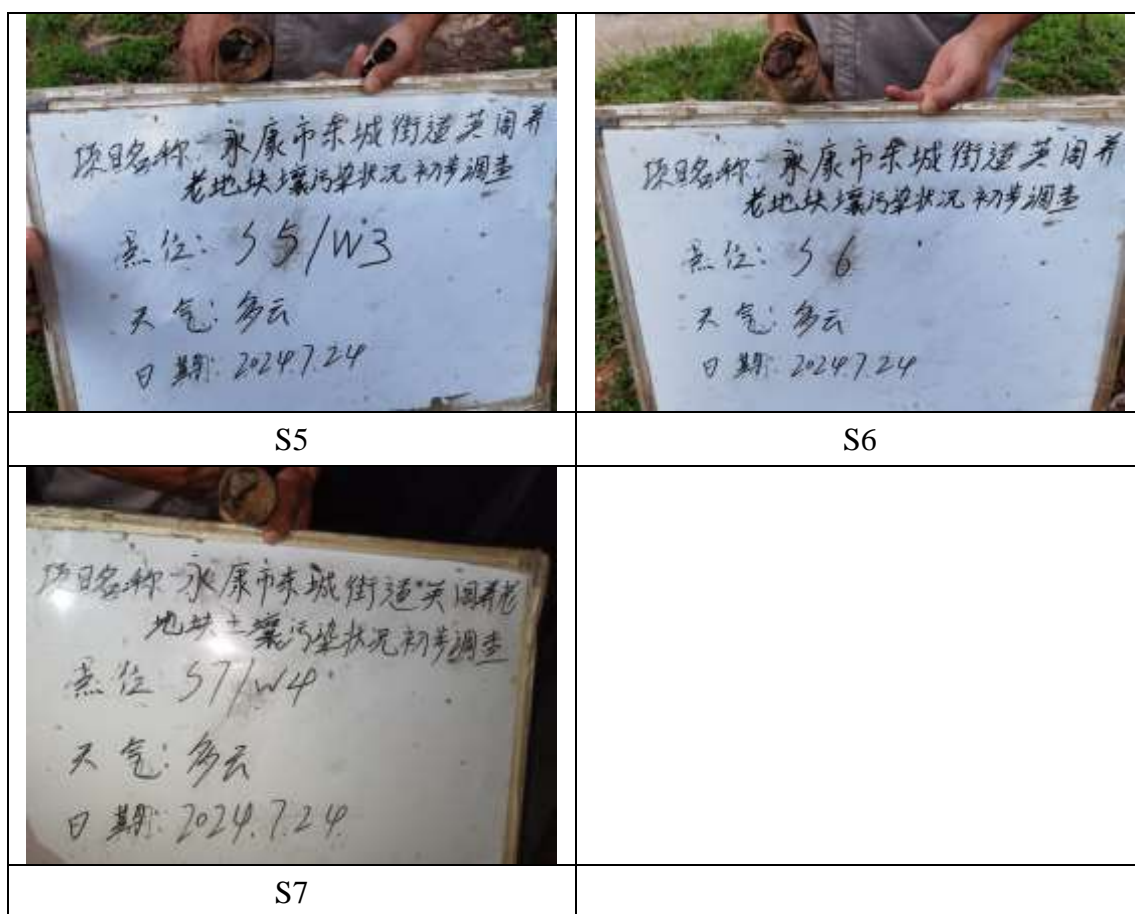 项目名称:永康市东城街道英周养
老地块壤污染状况初步调查
点位:S5/W3
天气:多云
日期:2024.7.24
项目名称:永康市东城街道英周养
老地块壤污染状况初步调查
点位:S6
天气:多云
日期:2024.7.24
S5
S6
项目名称:永康市东城街道英周养老
地块土壤污染状况初步调查
点位 S7/W4
天气:多云
日期:2024.7.24
S7